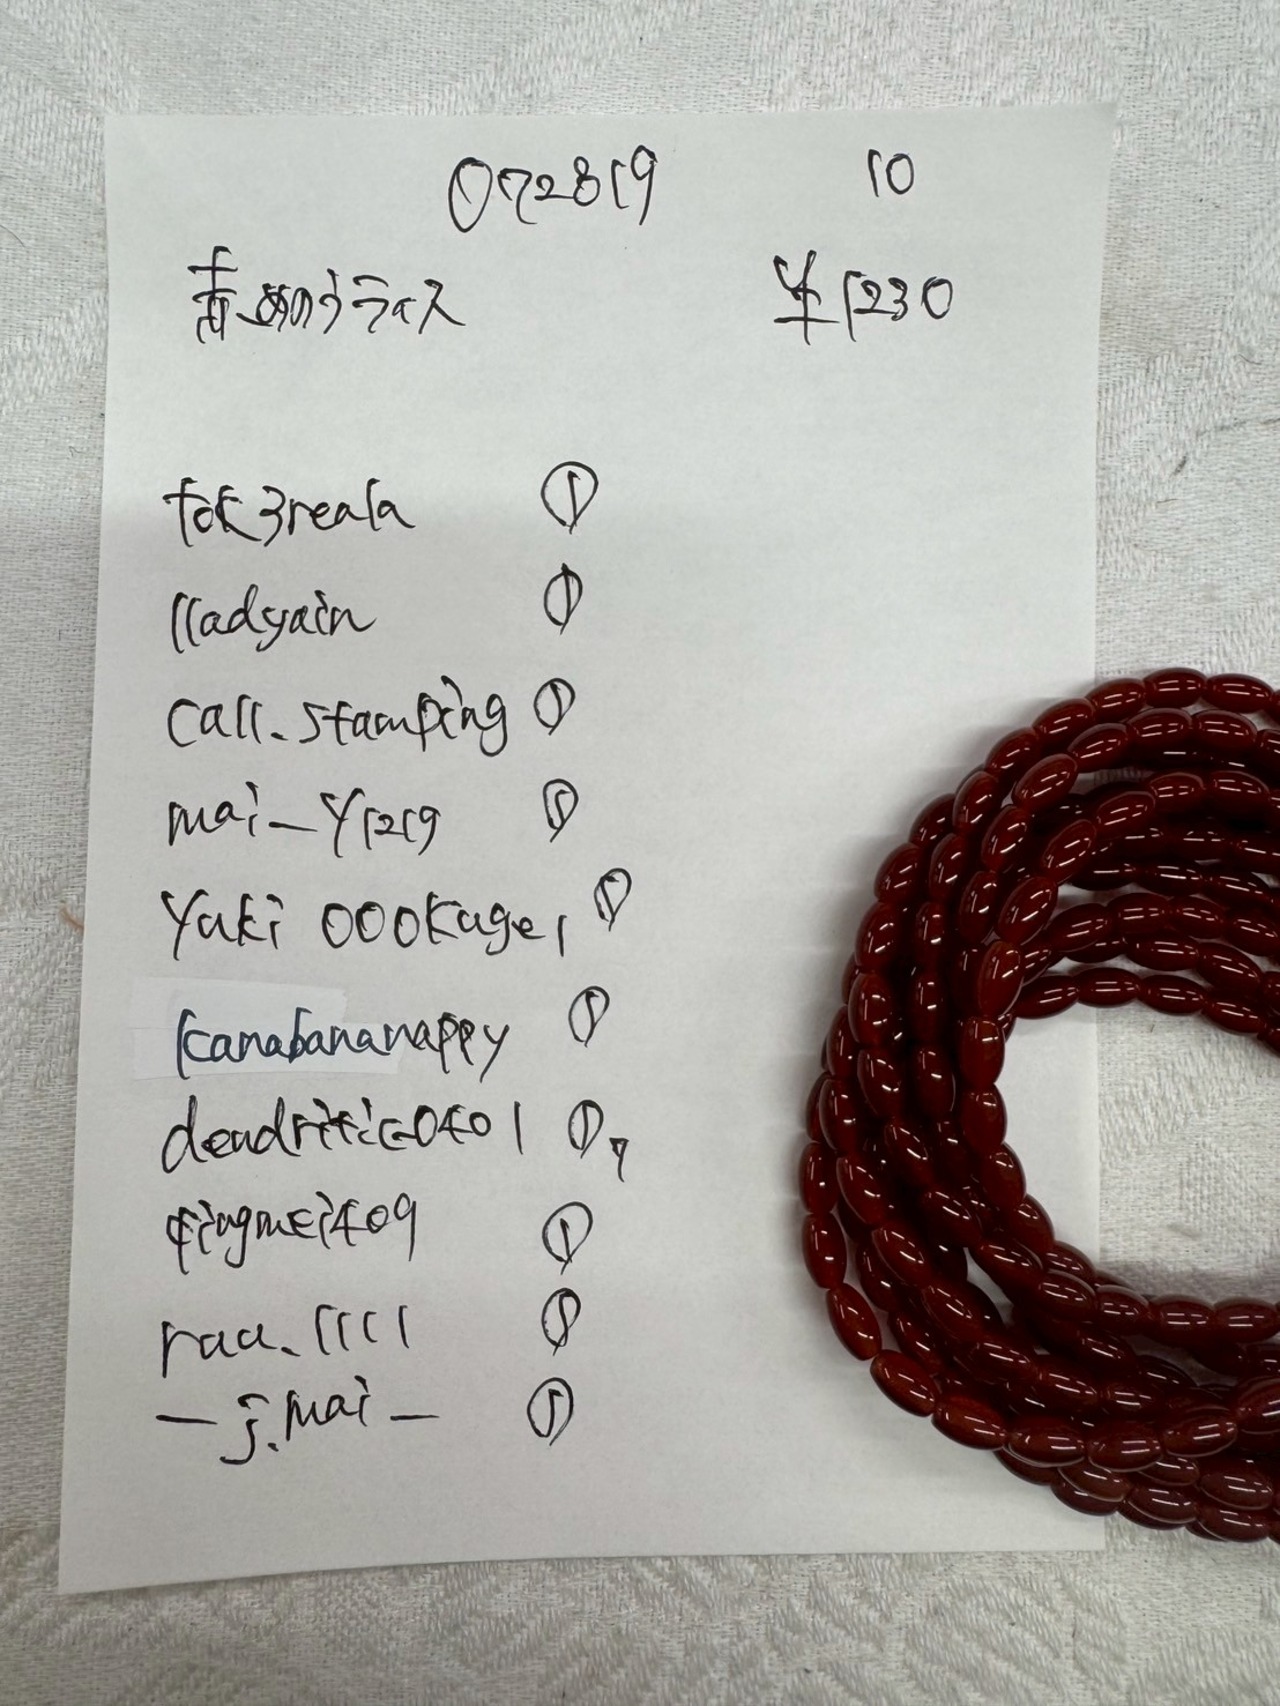 072819 10
青めのうライス ¥1230
tok3reala ①
lladyain ①
call.stamping ①
mai_y1219 ①
Yuki 000kage1 ①
kanabananappy ①
dendritic0401 ①
qingmei409 ①
raa.1111 ①
_j.mai_ ①